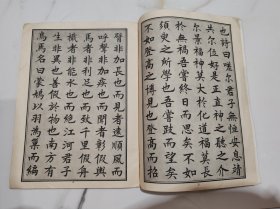 也詩曰嗟尔君子無恆安息靖
共尔位好是正直神之聽之介
尔景福神莫大於化道福莫長
於無禍吾嘗終日而思矣不如
須臾之所學也吾嘗跂而望矣
不如登高之博見也登高而招
臂非加長也而見者遠順風而
呼聲非加疾也而聞者彰假輿
馬者非利足也而致千里假舟
檝者非能水也而絕江河君子
生非異也善假於物也南方有
鳥焉名曰蒙鳩以羽為巢而編